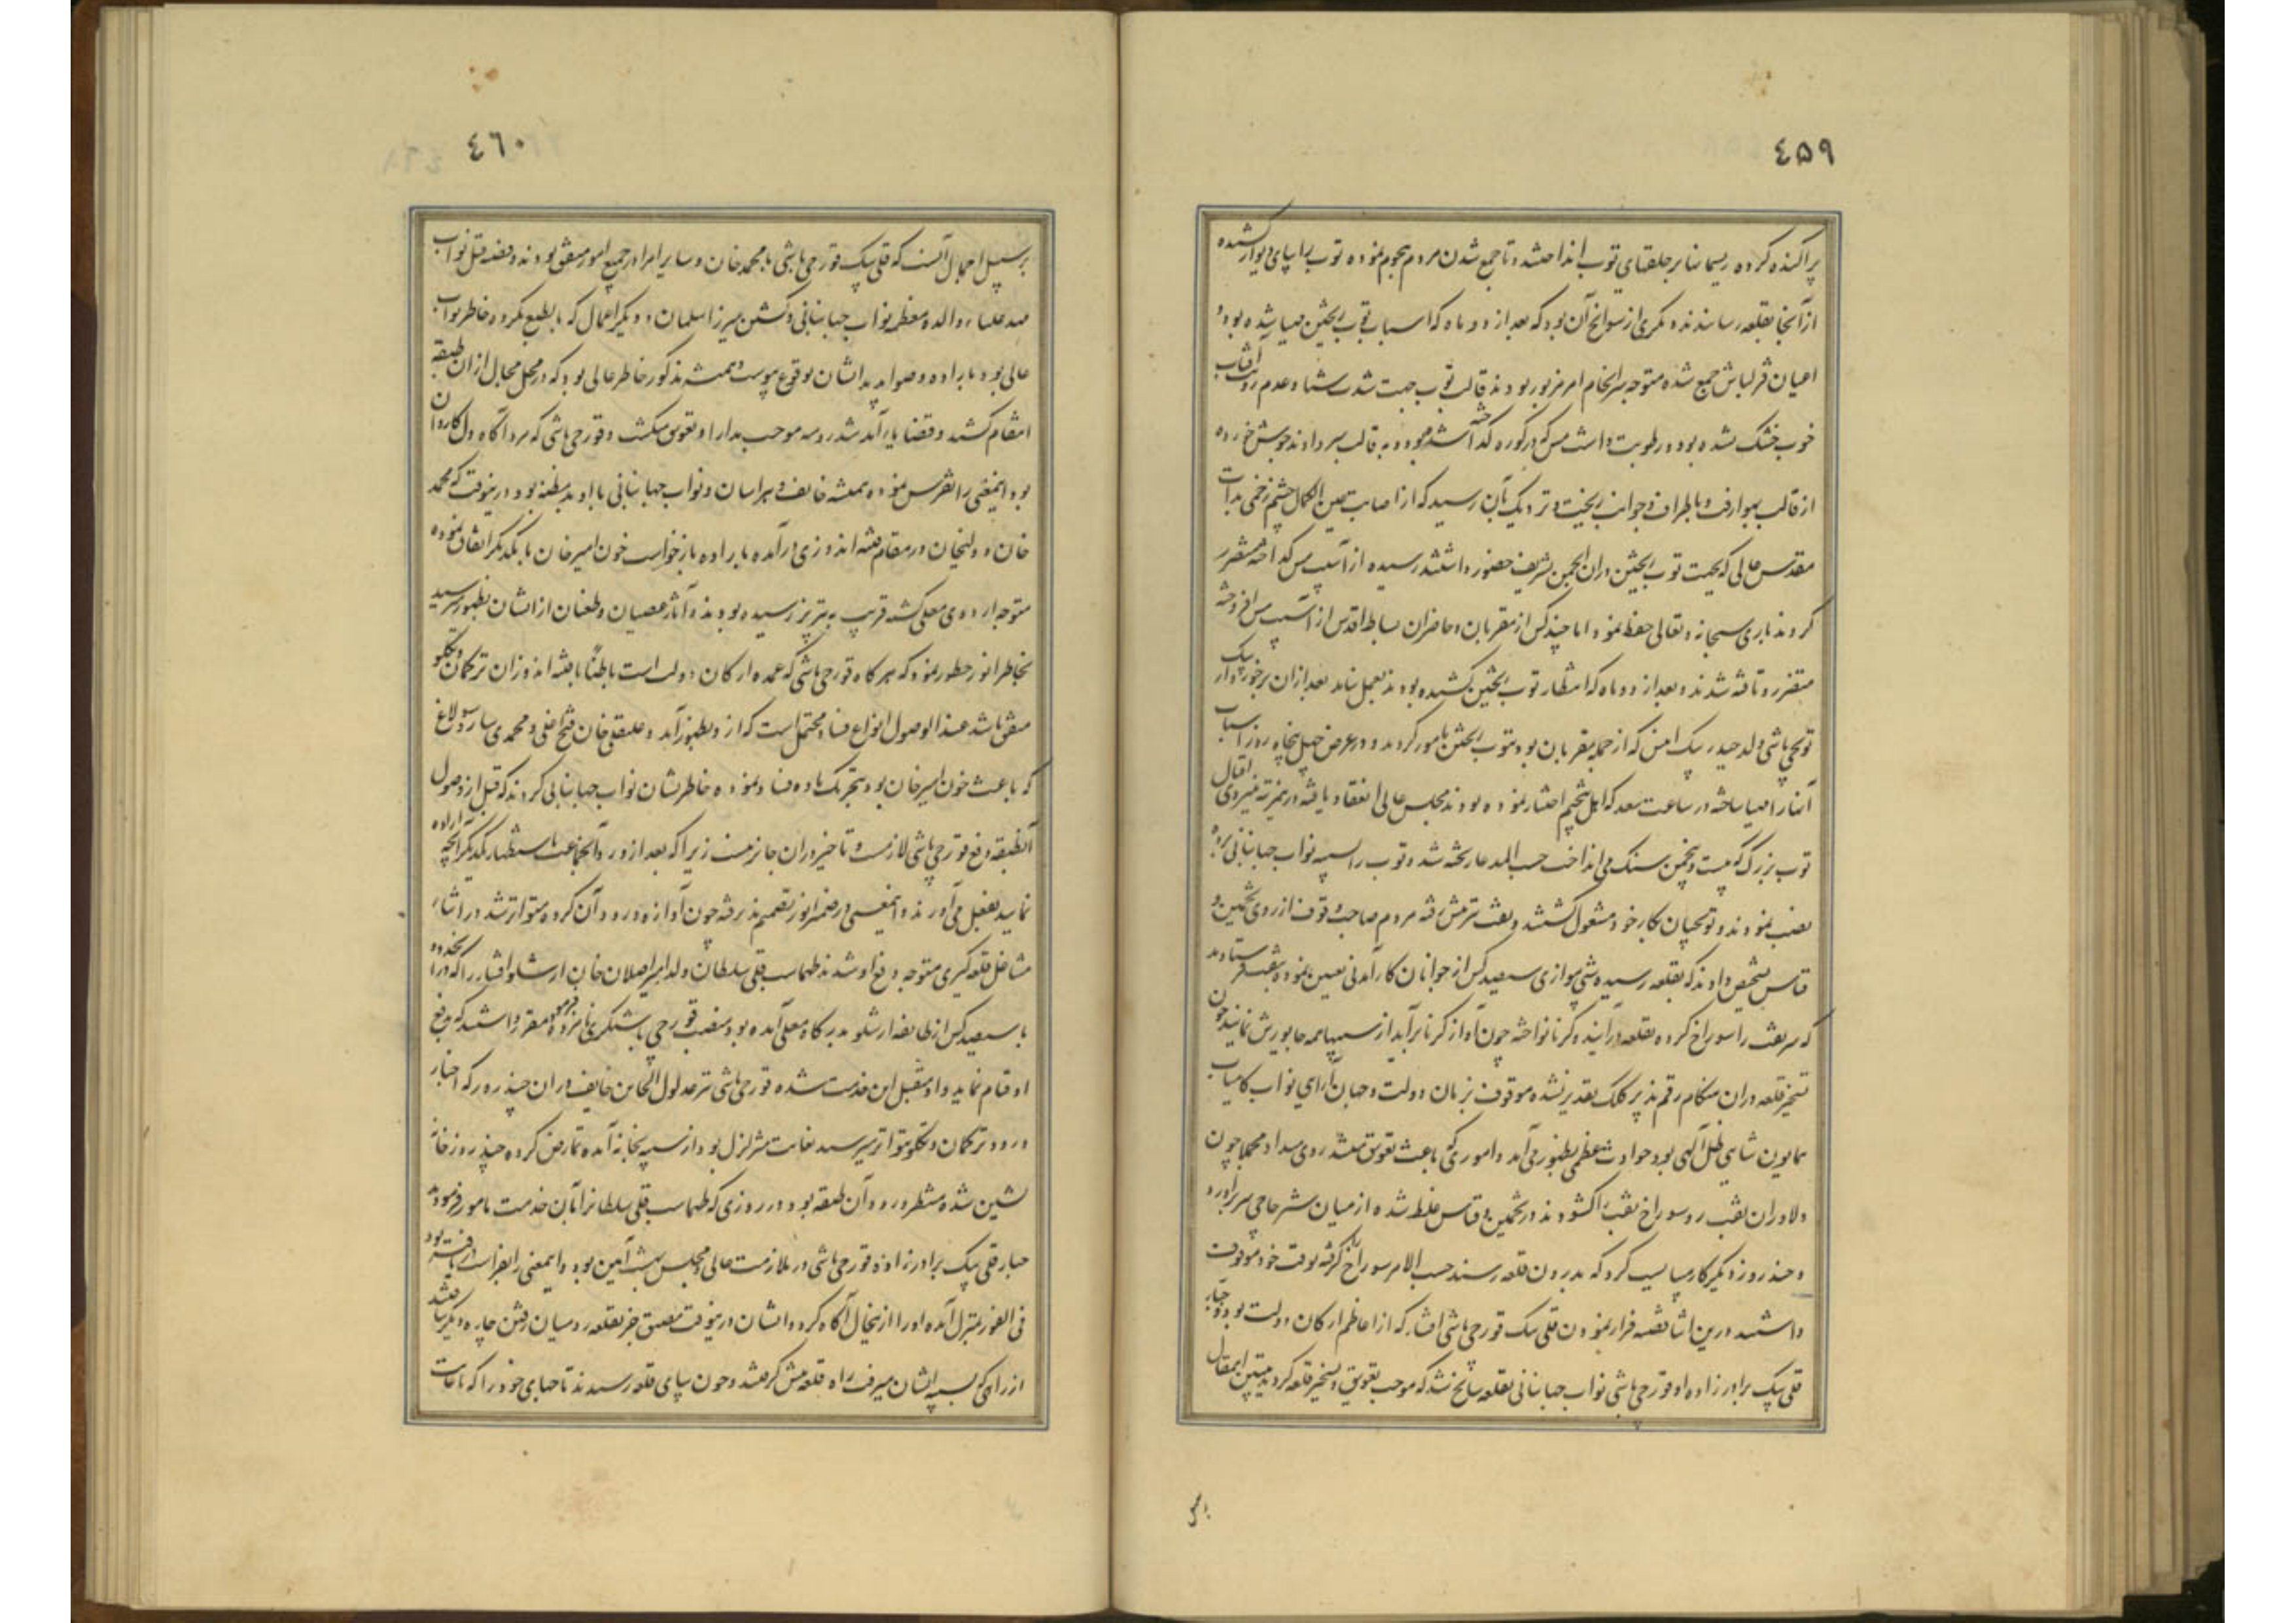 ٤۵۹
پراکنده کرده ریسمانها بر حلقهای توپ انداختند و تا جمع شدن مردم هجوم نموده توپ را پای دیوار کشیده
از آنجا بقلعه رسانیدند و دیگری از سوانح آن بود که بعد از دو ماه که اسباب توپ ریختن مهیا شده بود و
اعیان قزلباش جمع شده متوجه سرانجام امر مزبور بودند قالب توپ جهت شدت شتا و عدم رویت آفتاب
خوب خشک نشده بود و رطوبت داشت مس که در کوره گداخته شده بود و به قالب سر دادند جوش خورده
از قالب بهوا رفت و باطراف و جوانب ریخت و نزدیک بآن رسید که از اصابت عین الکمال چشم زخمی بذات
مقدس عالی که بجهت توپ ریختن در آن انجمن شریف حضور داشتند رسیده از آسیب مس گداخته متضرر
کردند باری سبحانه و تعالی حفظ نمود اما چند کس از مقربان و حاضران بساط اقدس از آسیب مس افروخته
متضرر و تافته شدند و بعد از دو ماه که انتظار توپ ریختن کشیده بودند بعمل نیامد بعد از آن برخوردار بیک
توپچی باشی ولد حیدر بیک انیس که از جمله مقربان بود بتوپ ریختن مامور کردید و در عرض چهل پنجاه روز اسباب
آنرا مهیا ساخته در ساعت سعد که اهل تنجیم اختیار نموده بودند مجلس عالی انعقاد یافته در نمرتبه نیروی اقبال
توپ بزرگ که بیست و پنجمن سنک می انداخت حسب المدعا ریخته شد و توپ را بسیبه نواب جهانبانی برده
نصب نمودند و توپچیان بکار خود مشغول گشتند و نقب نیز پیش رفته مردم صاحب وقوف از روی تخمین و
قیاس تشخیص دادند که بقلعه رسیده شبی موازی سیصد کس از جوانان کار آمدنی تعیین نموده بنقب فرستادند
که سر نقب را سوراخ کرده بقلعه درآیند و کرنا نواخته چون آواز کرنا برآید از سیبها همه جا یورش نمایند چون
تسخیر قلعه در آن هنگام رقم پذیر کلک تقدیر نشده موقوف بزمان دولت و جهان آرایی نواب کامیاب
همایون شاهی ظل آلهی بود حوادث عظمی بظهور می آمد و اموری که باعث تعویق میشد روی میداد مجملا چون
دلاوران نقب رو سوراخ نقب را کشودند در تخمین و قیاس غلط شده از میان شیر حاجی سر برآورد و
و چند روز دیگر کار میبایست کرد که بدرون قلعه رسند حسب الامر سوراخ را گرفته بوقت خود موقوف
داشتند در این اثنا قضیه فرار نمودن قلی بیک قورچی باشی افشار که از اعاظم ارکان دولت بود و جبار
قلی بیک برادرزاده او قورچی باشی نواب جهانبانی بقلعه سانح شد که موجب تعویق تسخیر قلعه گردید تبیین اینمقال
بر سبیل
٤٦٠
بر سبیل اجمال آنست که قلی بیک قورچی باشی با محمد خان و سایر امرا در جمیع امور متفق بودند و قضیه قتل نواب
مهد علیا والده معظمه نواب جهانبانی و کشتن میرزا سلمان و دیگر اعمال که بالطبع مکروه خاطر نواب
عالی بود باراده و صوابدید ایشان بوقوع پیوست و همیشه مذکور خاطر عالی بود که در محل مجال از آن طبقه
انتقام کشند و قضایا آمد شد رومیه موجب مدارا و تعویق میگشت و قورچی باشی که مرد آگاه دل کاردان
بود اینمعنی را تفرس نموده همیشه خایف و هراسان و نواب جهانبانی با او بدمظنه بود درینوقت که محمد
خان و ولیخان در مقام فتنه اندوزی درآمده باراده بازخواست خون امیر خان با یکدیگر اتفاق نموده
متوجه اردوی معلی گشته قریب به تبریز رسیده بودند و آثار عصیان و طغیان از ایشان بظهور رسید
بخاطر انور خطور نمود که هر گاه قورچی باشی که عمده ارکان دولت است باطنا با فتنه اندوزان ترکمان و تکلو
متفق باشد عند الوصول انواع فساد محتمل است که از او بظهور آید و علیقلی خان فتح اغلی و محمدی ساروسولاغ
که باعث خون امیر خان بود بتحریک ماده فساد نموده خاطرنشان نواب جهانبانی کردند که قبل از وصول
آنطبقه دفع قورچی باشی لازمست و تاخیر در آن جایز نیست زیرا که بعد از ورود آنجماعت باستظهار یکدیگر آنچه اراده
نمایند بفعل می آورند و اینمعنی در ضمیر انور تصمیم پذیرفته چون آوازه ورود آن کروه متواتر شد در اثناء
مشاغل قلعه گیری متوجه دفع او شدند طهماسب قلی سلطان ولد امیر اصلان خان ارشلو افشار را که در آن حدود
با سیصد کس از طایفه ارشلو بدرگاه معلی آمده بود بمنصب قورچی باشیگری نامزد فرموده مقرر داشتند که بدفع
او قیام نماید و او متقبل این خدمت شده قورچی باشی نیز مدلول الخاین خایف در آن چند روز که اخبار
ورود ترکمان و تکلو متواتر میرسید بغایت متزلزل بود از سیبه بخانه آمده تمارض کرده چند روز خانه
نشین شده منتظر ورود آن طبقه بود در روزی که طهماسب قلی سلطان را بآن خدمت مامور فرمودند
جبار قلی بیک برادرزاده قورچی باشی در ملازمت عالی و مجلس بهشت آیین بود و اینمعنی را بفراست دریافته بود
فی الفور بمنزل آمده او را از اینحال آگاه کرد و ایشان درینوقت مضیق جز بقلعه رومیان رفتن چاره دیگر نیافتند
از راهی که بسیبه ایشان میرفت راه قلعه پیش گرفتند و چون بپای قلعه رسیدند تاجهای خود را که تا غایت